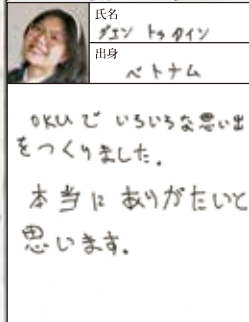 氏名
グエン トゥ タイン
出身
ベトナム
OKUで いろいろな思い出
をつくりました。
本当に ありがたいと
思います。